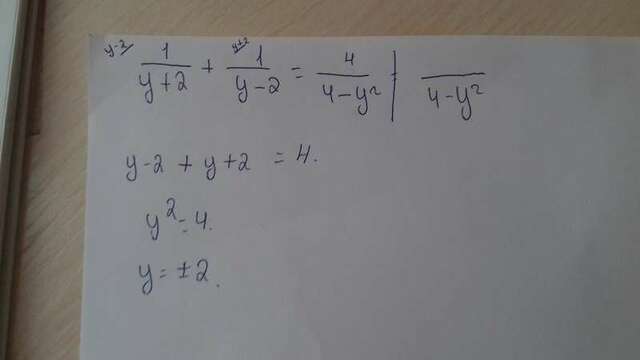 y-2/ 1/(y+2) + y+2/ 1/(y-2) = 4/(4-y²) | /(4-y²)
y-2 + y+2 = 4.
y² = 4.
y = ±2.